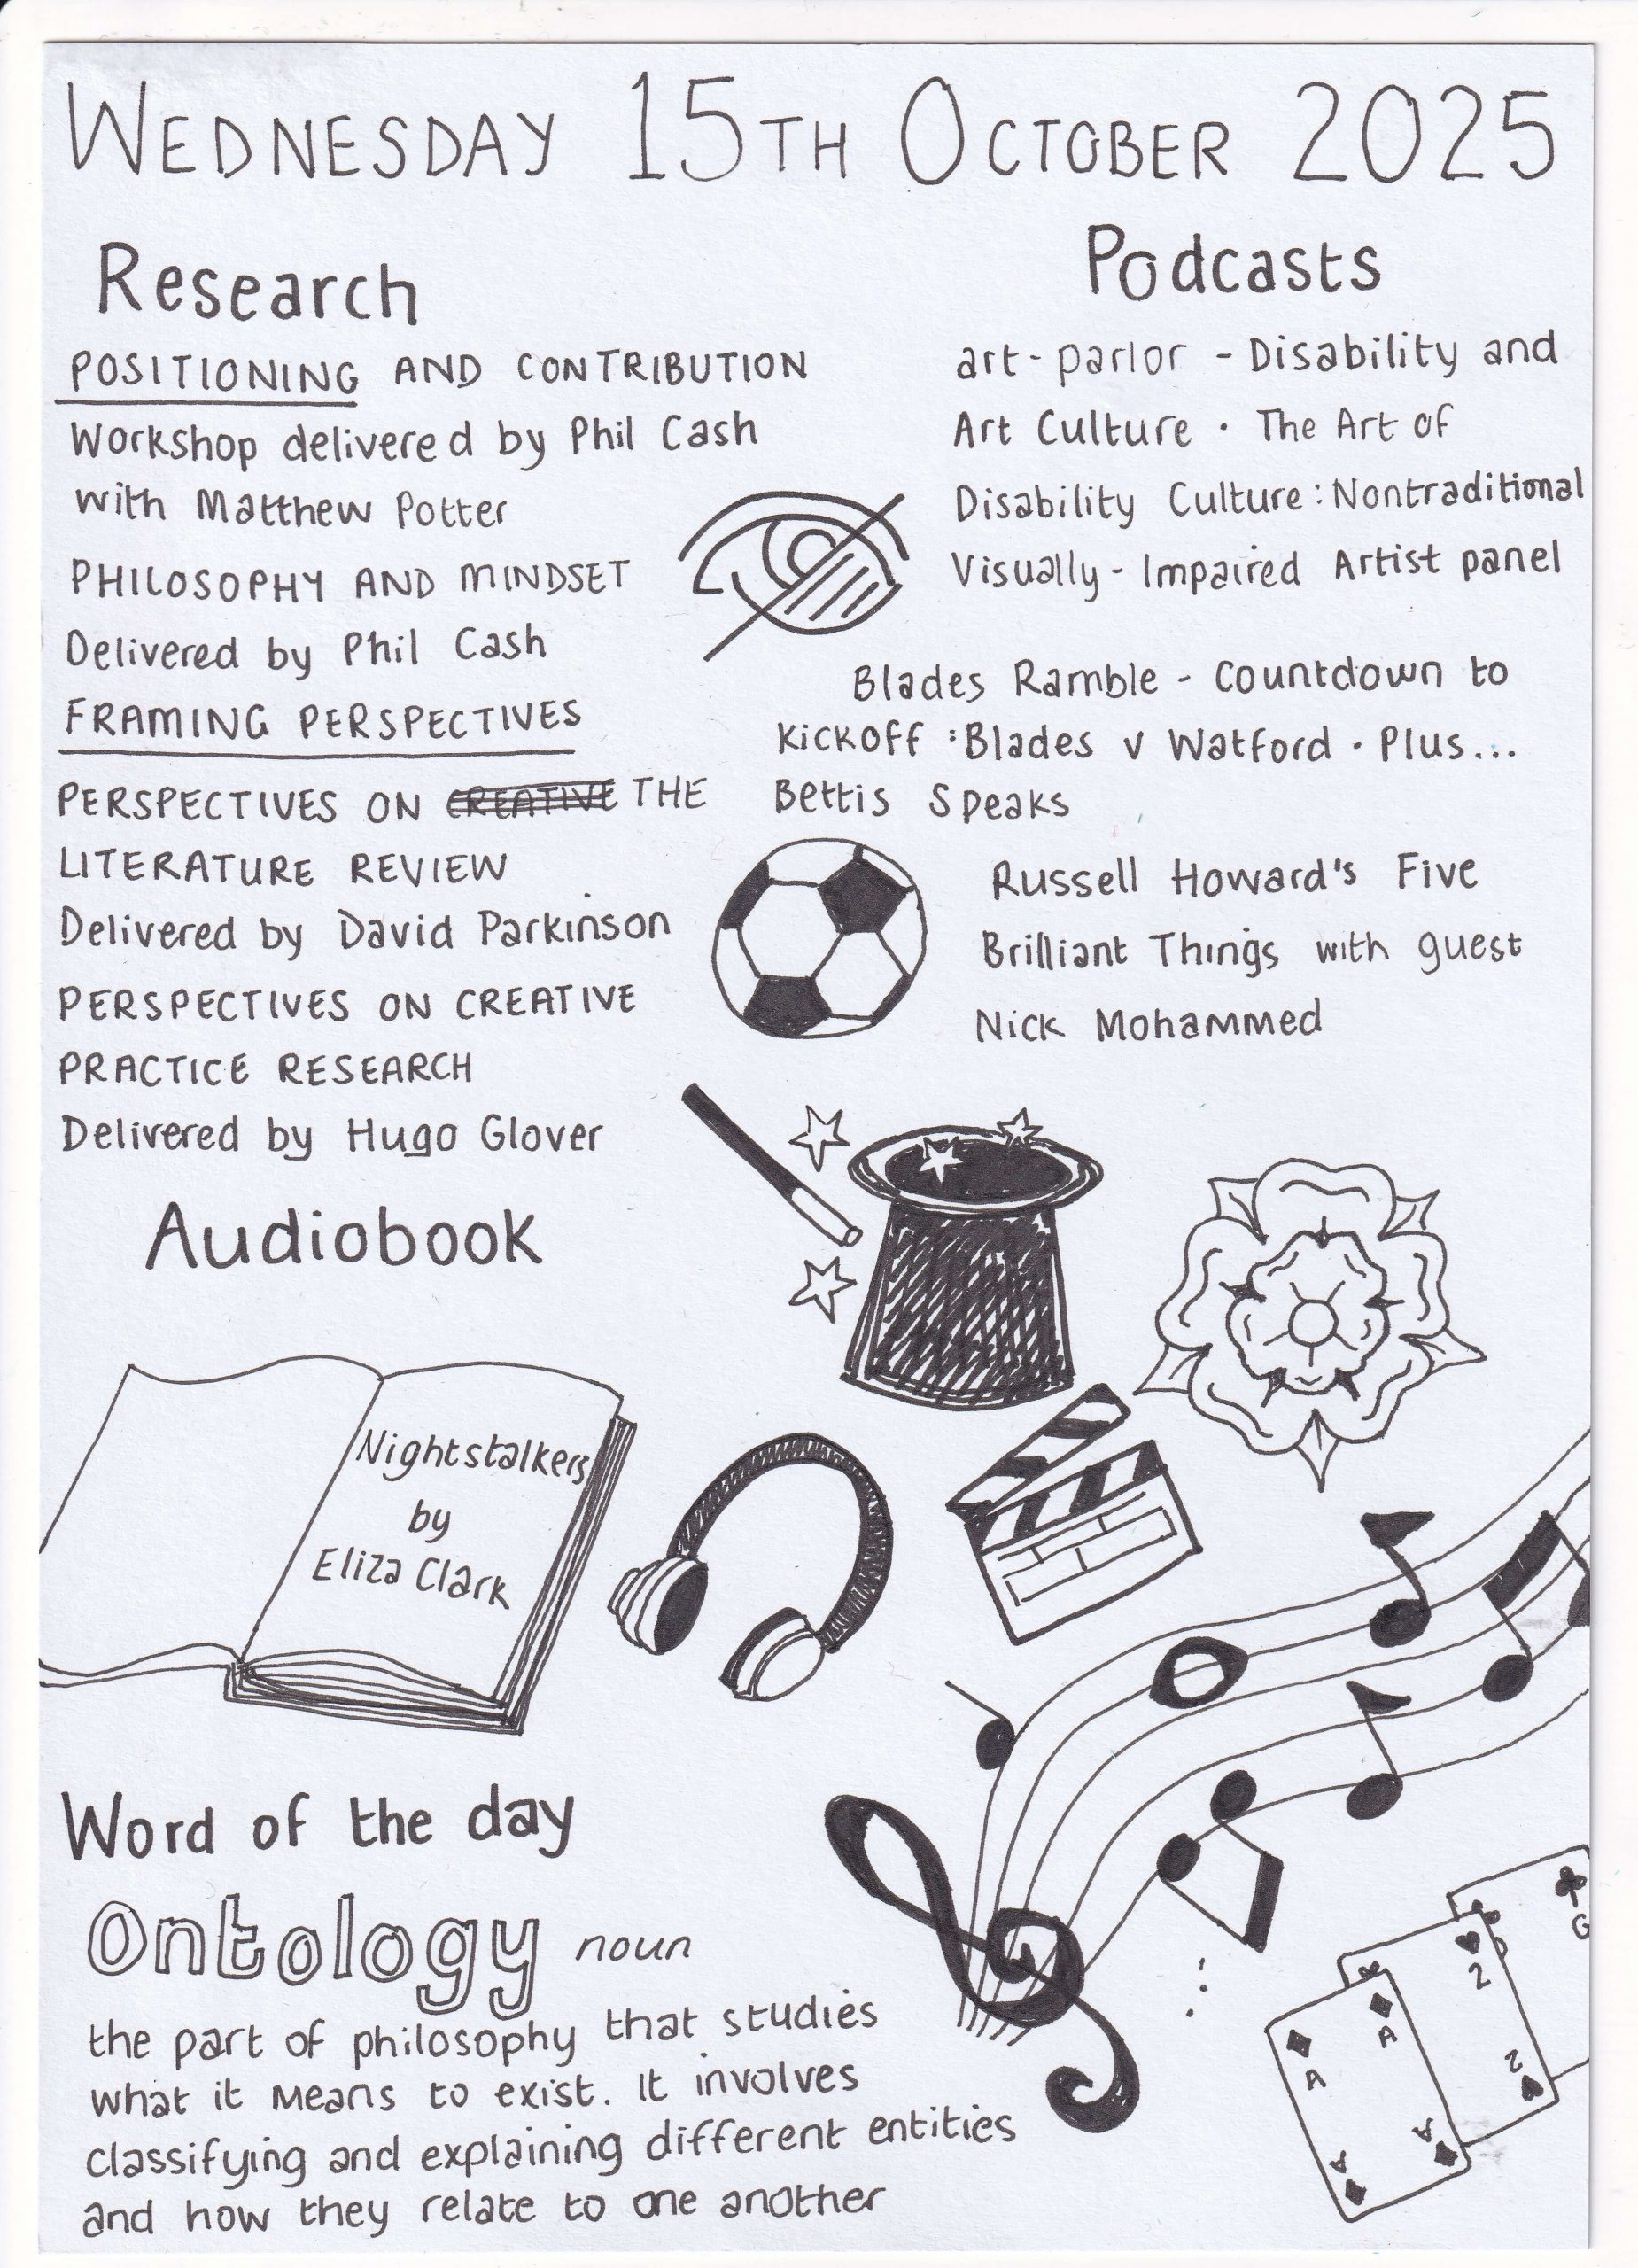 WEDNESDAY 15TH OCTOBER 2025
Research
POSITIONING AND CONTRIBUTION
Workshop delivered by Phil Cash
with Matthew Potter
PHILOSOPHY AND MINDSET
Delivered by Phil Cash
FRAMING PERSPECTIVES
PERSPECTIVES ON CREATIVE THE
LITERATURE REVIEW
Delivered by David Parkinson
PERSPECTIVES ON CREATIVE
PRACTICE RESEARCH
Delivered by Hugo Glover
Podcasts
art-parlor - Disability and
Art Culture · The Art of
Disability Culture: Nontraditional
Visually-Impaired Artist panel
Blades Ramble - Countdown to
Kickoff: Blades v Watford · Plus...
Bettis Speaks
Russell Howard's Five
Brilliant Things with guest
Nick Mohammed
Audiobook
Nightstalkers
by
Eliza Clark
Word of the day
Ontology noun
the part of philosophy that studies
what it means to exist. It involves
classifying and explaining different entities
and how they relate to one another
G
2
2
A
A
A
A